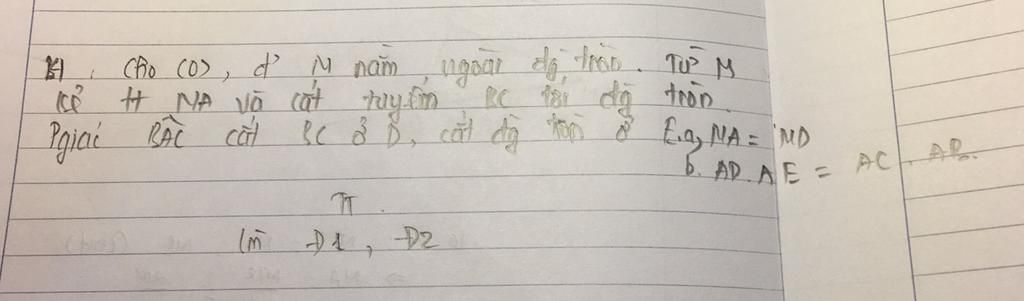 B1. Cho (O), đ' M nằm ngoài đg tròn. Từ M
kẻ tt MA và cát tuyến BC tới đg tròn.
Pgiác BAC cắt BC ở D, cắt đg tròn ở E. a, MA = MD
b. AD. AE = AC. AB.
π.
Đ1, Đ2